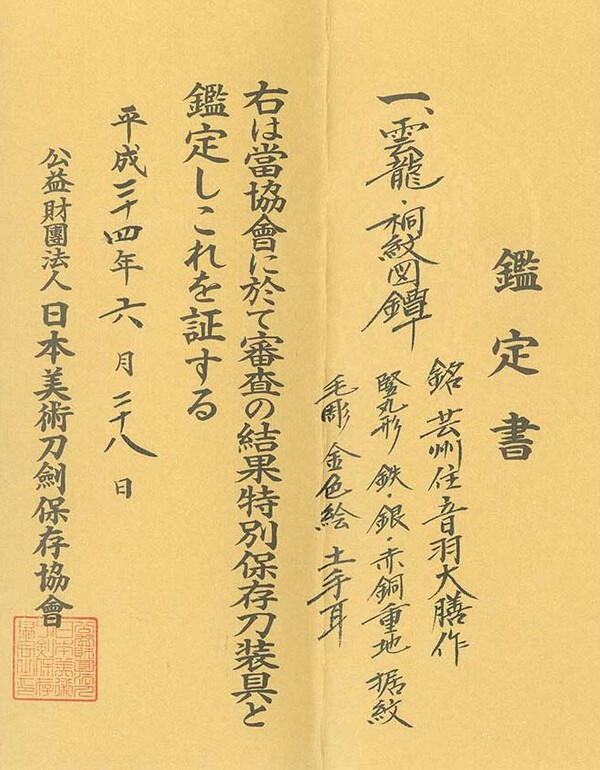 鑑定書
一、雲龍・桐紋図鐔
銘 芸州住音羽大膳作
竪丸形 鉄・銀・赤銅重地 据紋
毛彫 金色絵 土手耳
右は當協會に於て審査の結果特別保存刀装具と
鑑定しこれを証する
平成二十四年六月二十八日
公益財團法人日本美術刀劍保存協會